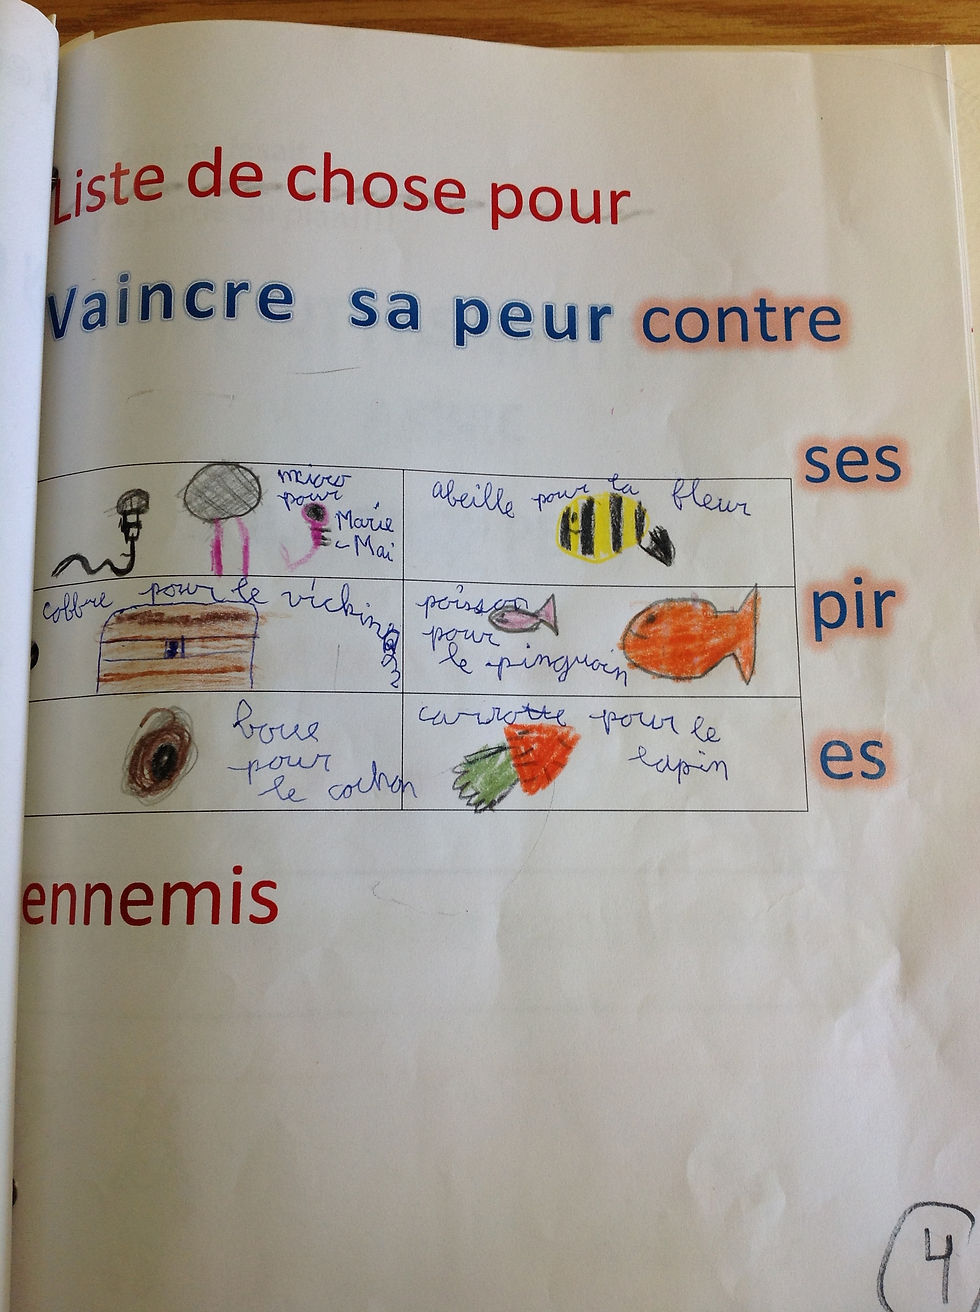 Liste de chose pour
Vaincre sa peur contre
ses
pir
es
micro
pour
Marie
-Mai
abeille pour la fleur
coffre pour le vicking
poisson
pour
le pinguoin
boue
pour
le cochon
carrotte pour le
lapin
ennemis
4